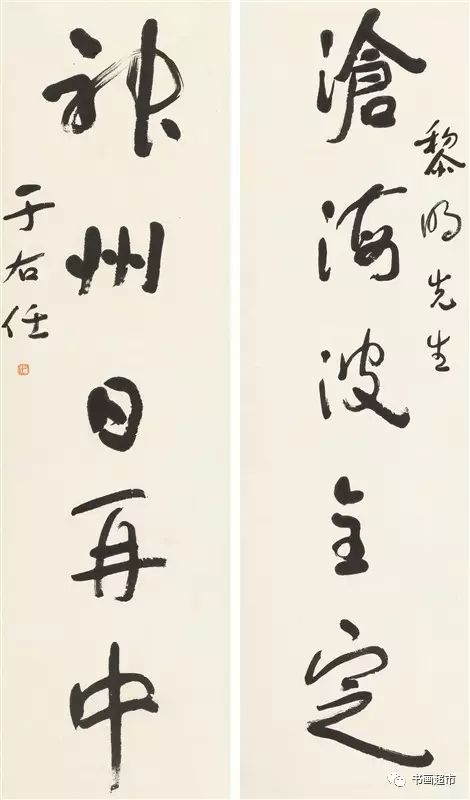 黎明先生
滄海波全定
神州日再中
于右任
书画超市